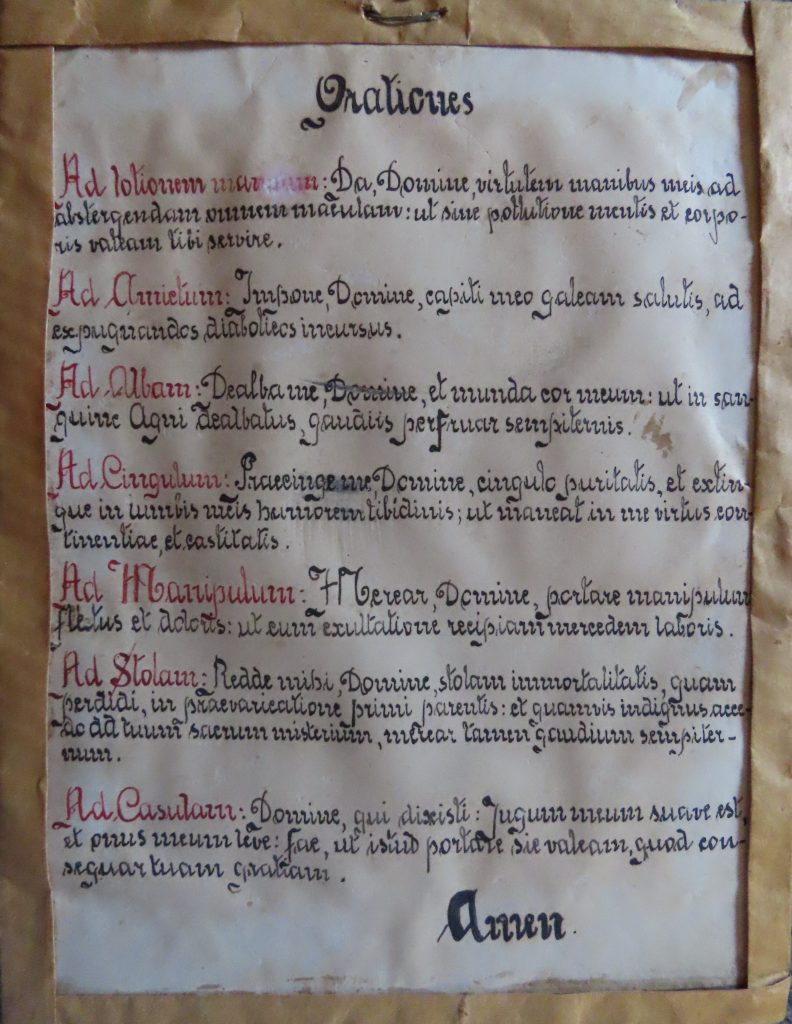 Orationes
Ad lotionem manuum: Da, Domine, virtutem manibus meis ad
abstergendam omnem maculam: ut sine pollutione mentis et corpo-
ris valeam tibi servire.
Ad Amictum: Impone, Domine, capiti meo galeam salutis, ad
expugnandos diabolicos incursus.
Ad Albam: Dealba me, Domine, et munda cor meum: ut in san-
guine Agni dealbatus, gaudiis perfruar sempiternis.
Ad Cingulum: Praecinge me, Domine, cingulo puritatis, et extin-
gue in lumbis meis humorem libidinis; ut maneat in me virtus con-
tinentiae, et castitatis.
Ad Manipulum: Merear, Domine, portare manipulum
fletus et doloris: ut cum exultatione recipiam mercedem laboris.
Ad Stolam: Redde mihi, Domine, stolam immortalitatis, quam
perdidi, in praevaricatione primi parentis: et quamvis indignus acce-
do ad tuum sacrum misterium, merear tamen gaudium sempiter-
num.
Ad Casulam: Domine, qui dixisti: Jugum meum suave est,
et onus meum leve: fac, ut istud portare sic valeam, quad con-
sequar tuam gratiam.
Amen.